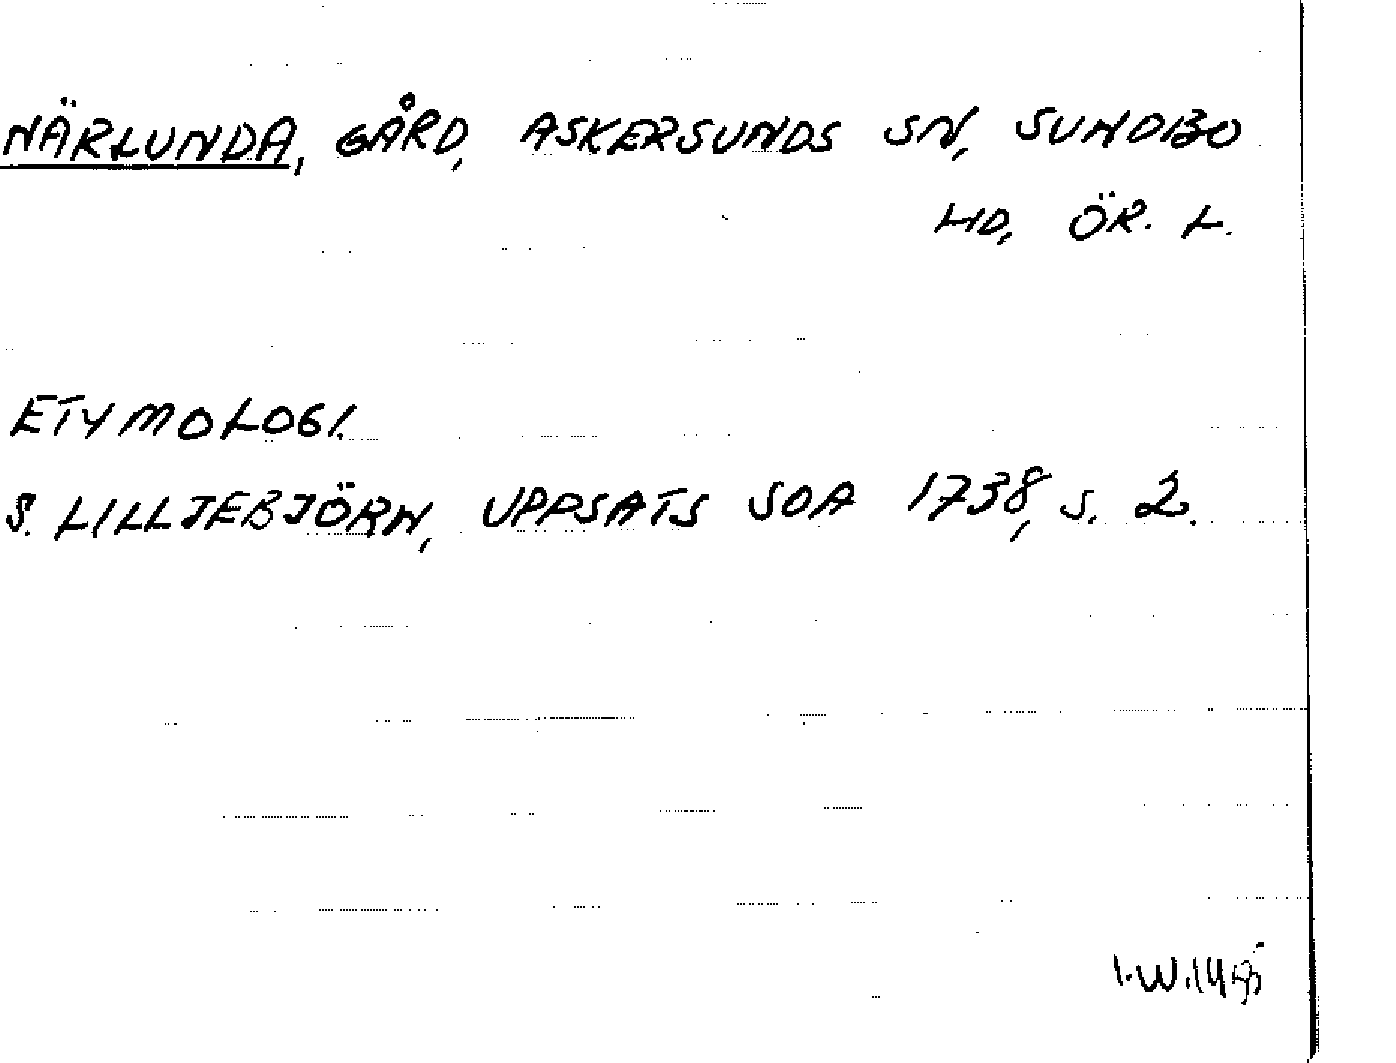 NÄRLUNDA, GÅRD, ASKERSUNDS SN, SUNDBO
HD, ÖR. L.
ETYMOLOGI.
S. LILLJEBJÖRN, UPPSATS SOA 1738, S. 2.
I.W.